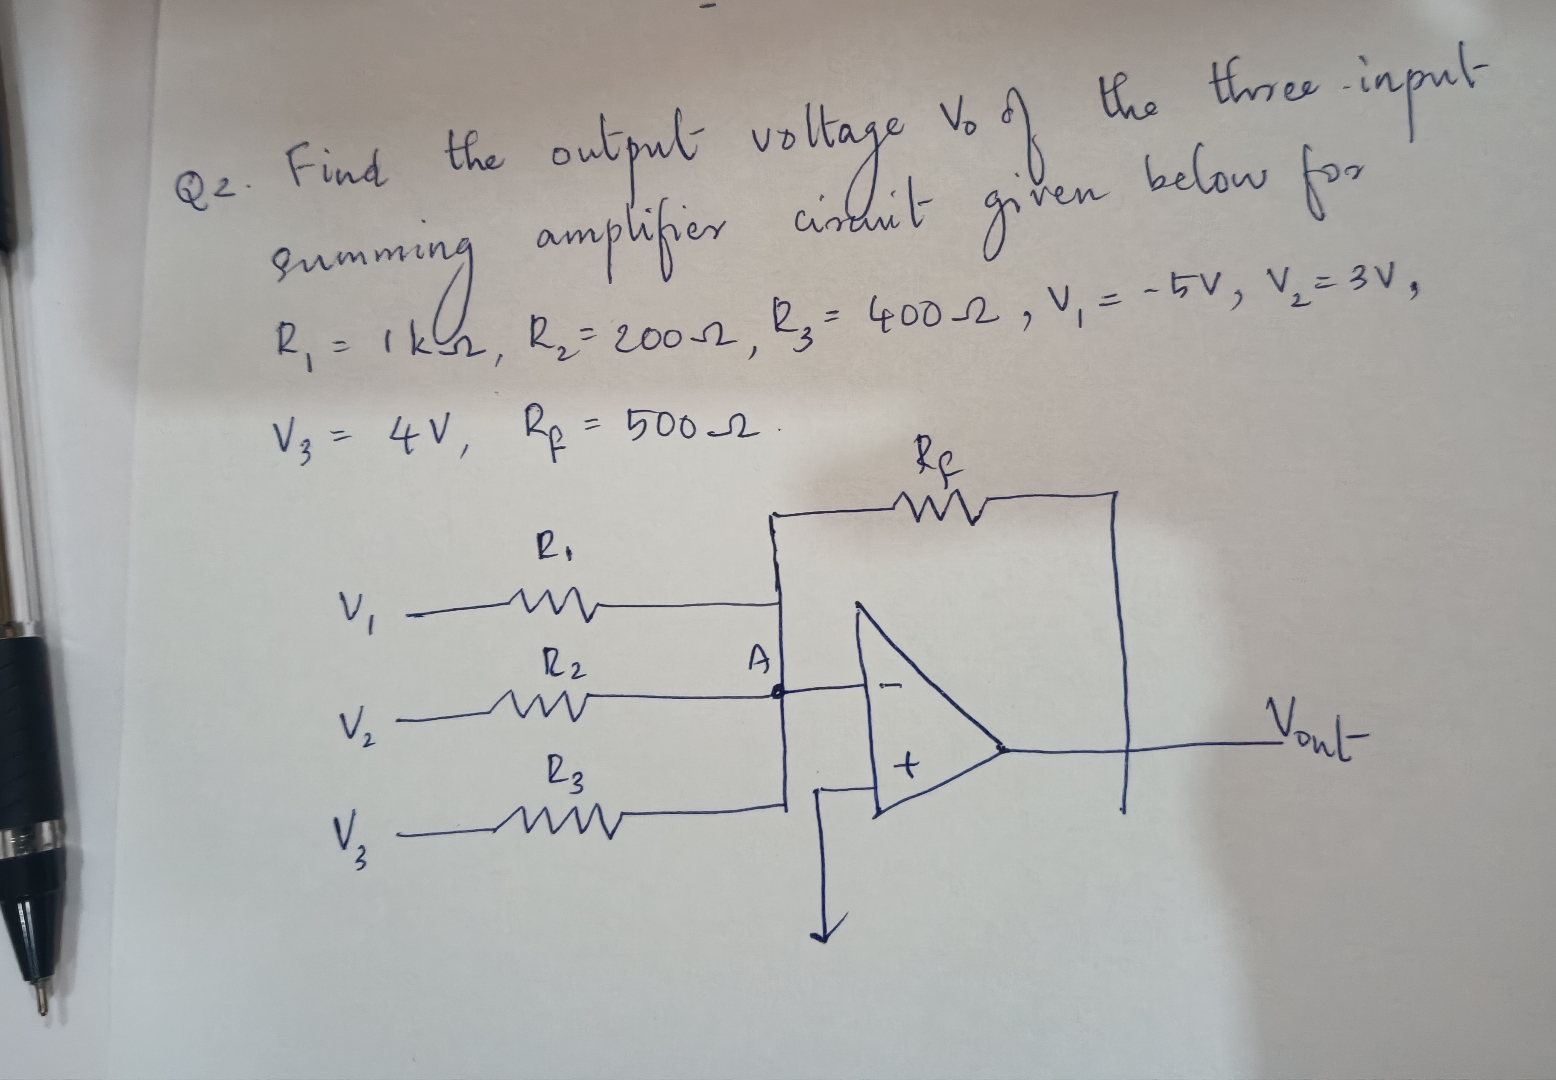 Q2. Find the output voltage V₀ of the three-input
summing amplifier circuit given below for
R₁ = 1kΩ, R₂ = 200Ω, R₃ = 400Ω, V₁ = -5V, V₂ = 3V,
V₃ = 4V, R_f = 500Ω.
R_f
R₁
V₁
R₂
A
V₂
-
Vout
R₃
+
V₃